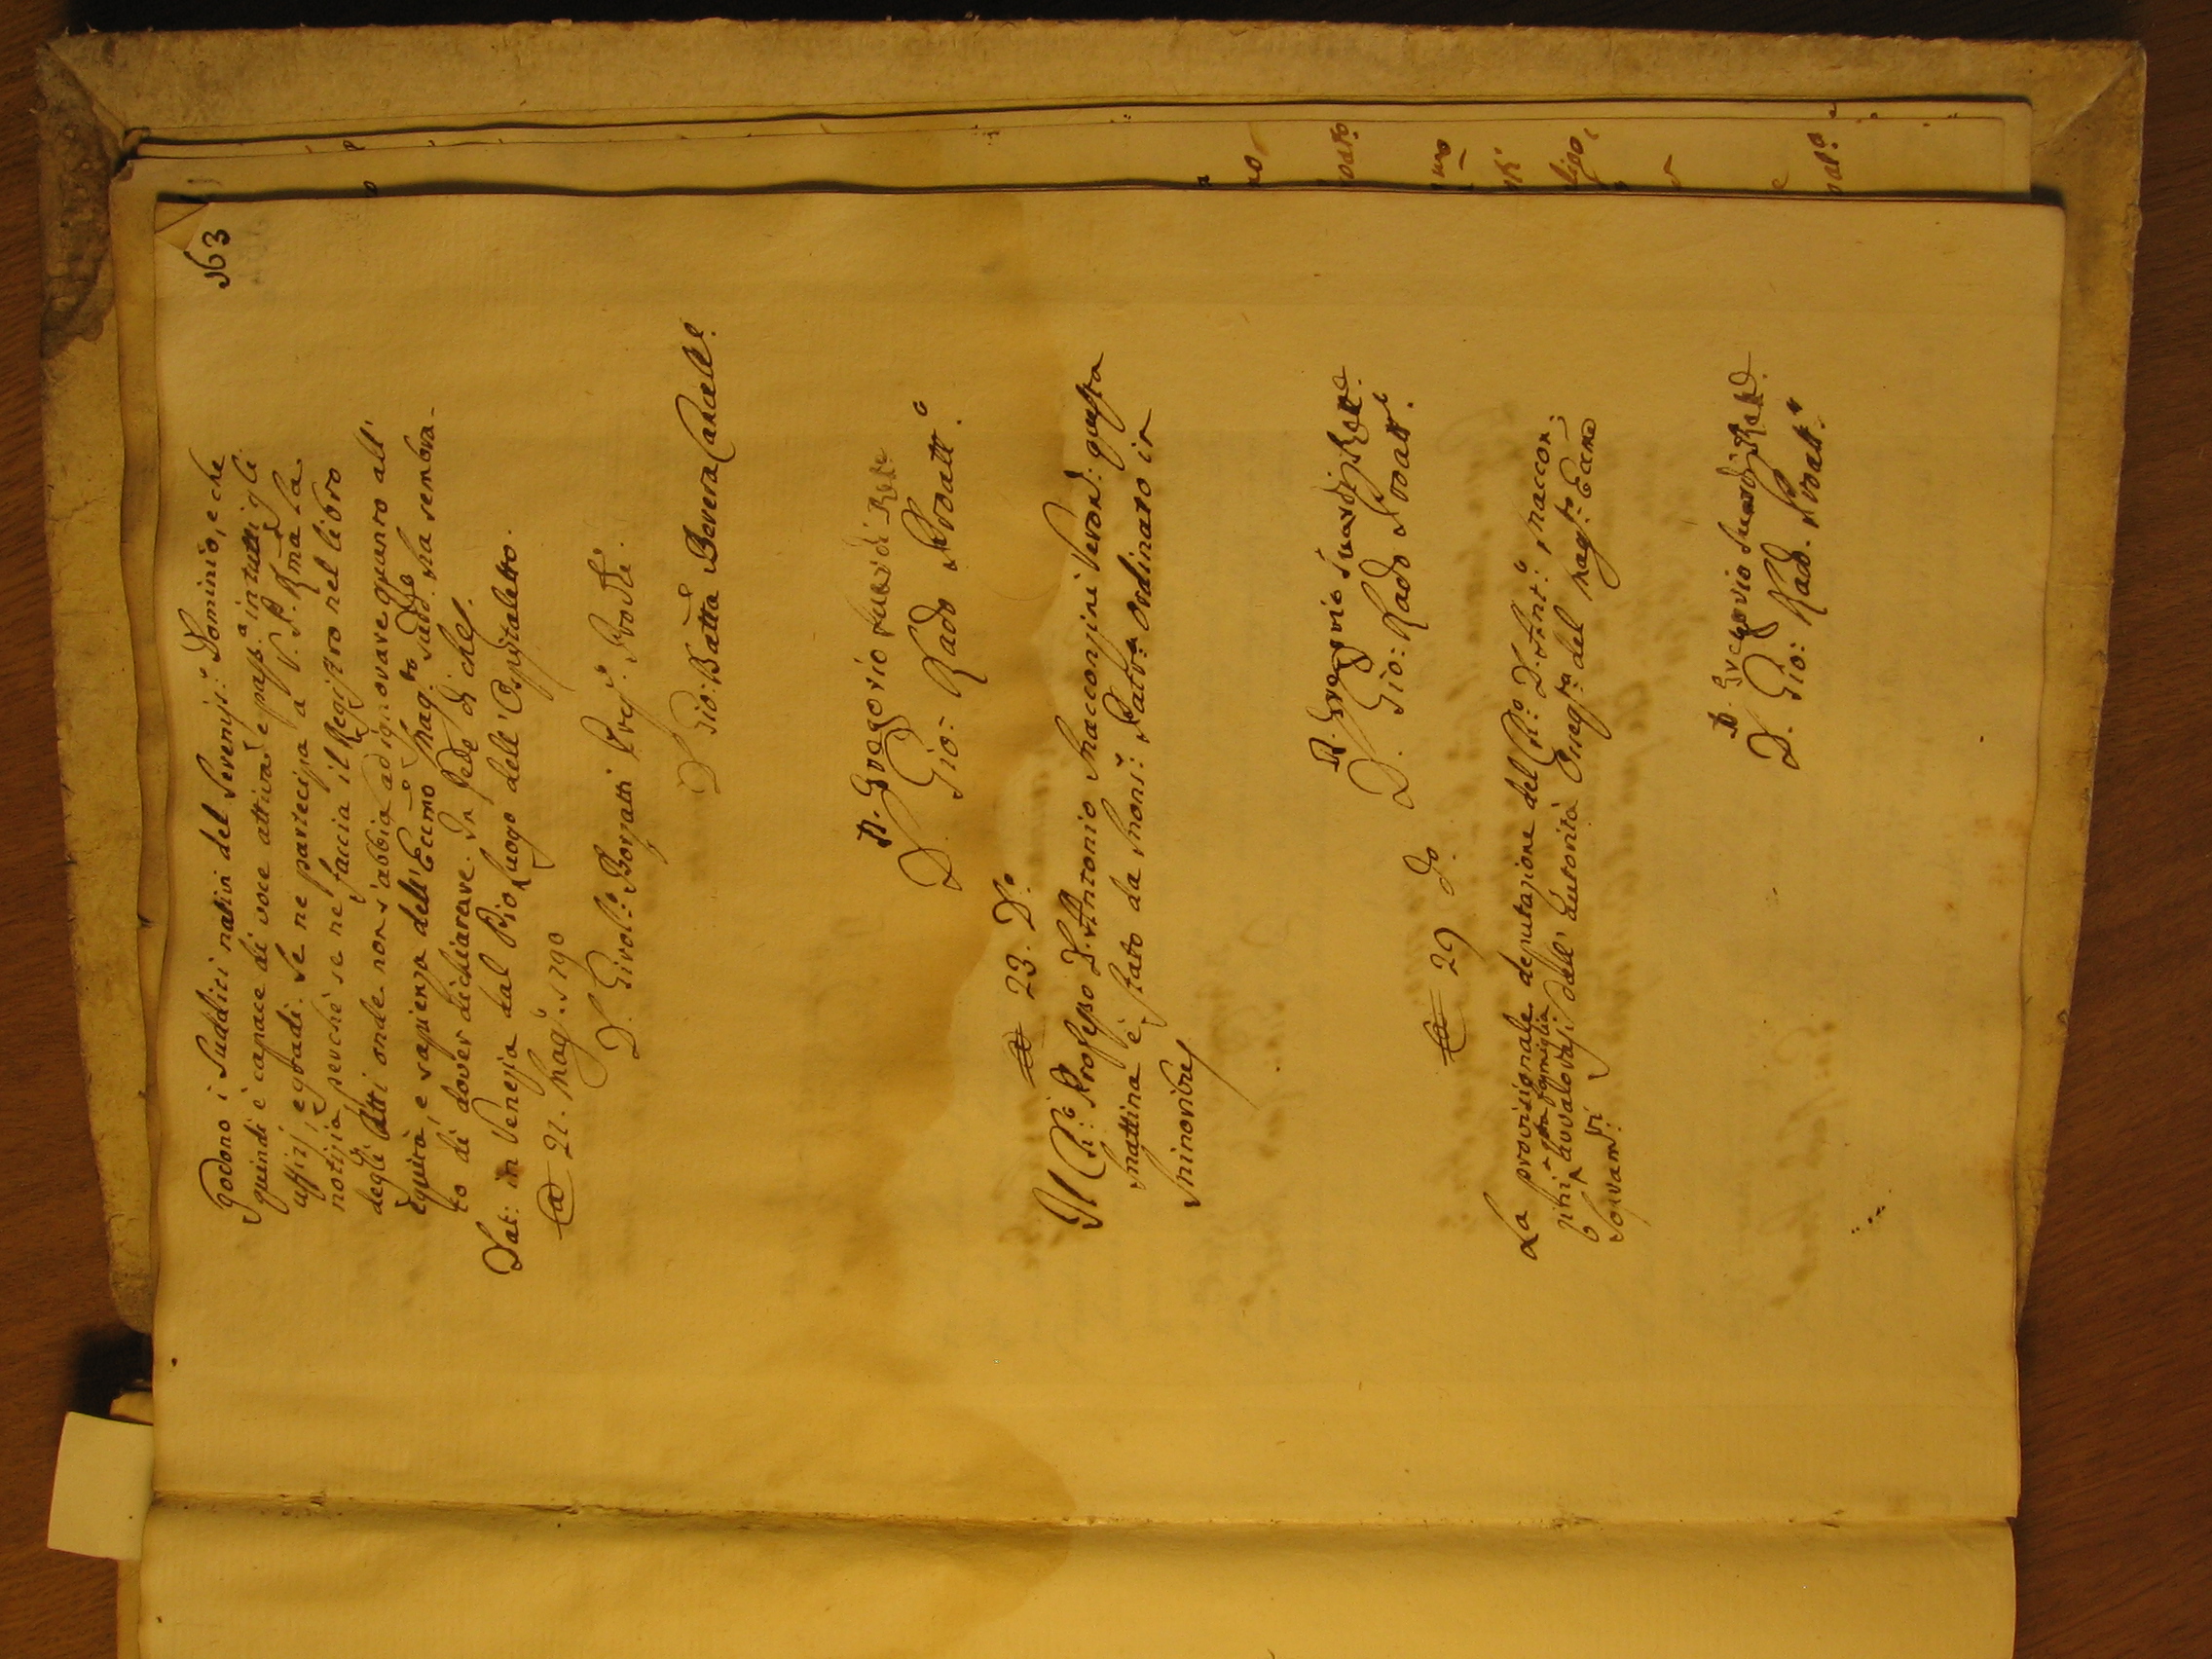 163
godono i Sudditi nativi del Sereniss.º Dominio, e che
quindi è capace di voce attiva, e pass.ª in tutti gli
uffizj, e gradi. Se ne partecipa a V. P. Rma la
notizia perchè se ne faccia il Registro nel libro
degli Atti onde non s'abbia ad ignorare quanto all'
equità, e sapienza dell'Eccmo Mag.to Sudd.to ha sembra-
to di dover dichiarare. In fede di che
Dat: in Venezia dal Pio Luogo dell'Ospitaletto.
22. Mag.º 1790
D. Girol.º Borzatti Prep.º Prov.le
D. Gio: Batta Bevera Cancell.e
D. Gregorio Suardi Rett.e
D. Gio: Rado Proatt.º
23. D.º
Il Ch.º Professo D. Antonio Macconzini Veron: questa
mattina è stato da Mons.r Patr.ª ordinato in
minoribus
D. Gregorio Suardi Rett.e
D. Gio: Rado Proatt.e
29 do.
La provisionale deputazione del Ch.º D. Ant.º Maccon:
zini a q.ta famiglia avvalorasi dall'autorità Osseq.ta del Mag.to Eccmo
Sovram.ti
D. Gregorio Suardi Rett.
D. Gio: Rado. Proatt.º